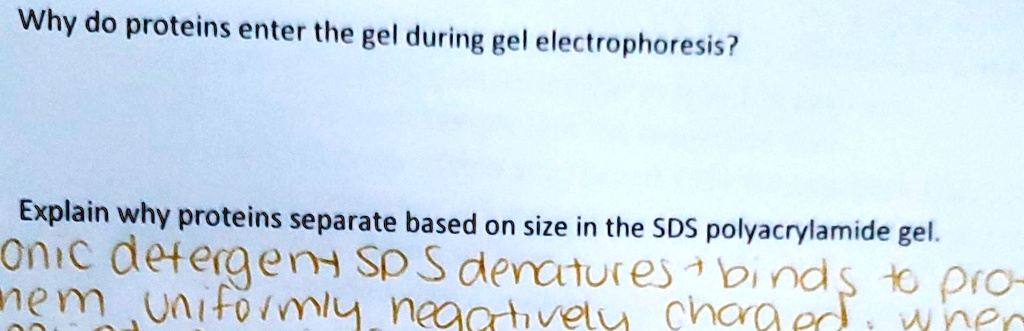 Why do proteins enter the gel during gel electrophoresis?
Explain why proteins separate based on size in the SDS polyacrylamide gel.
onic detergent SDS denatures + binds to pro-
hem uniformly negatively charged. when